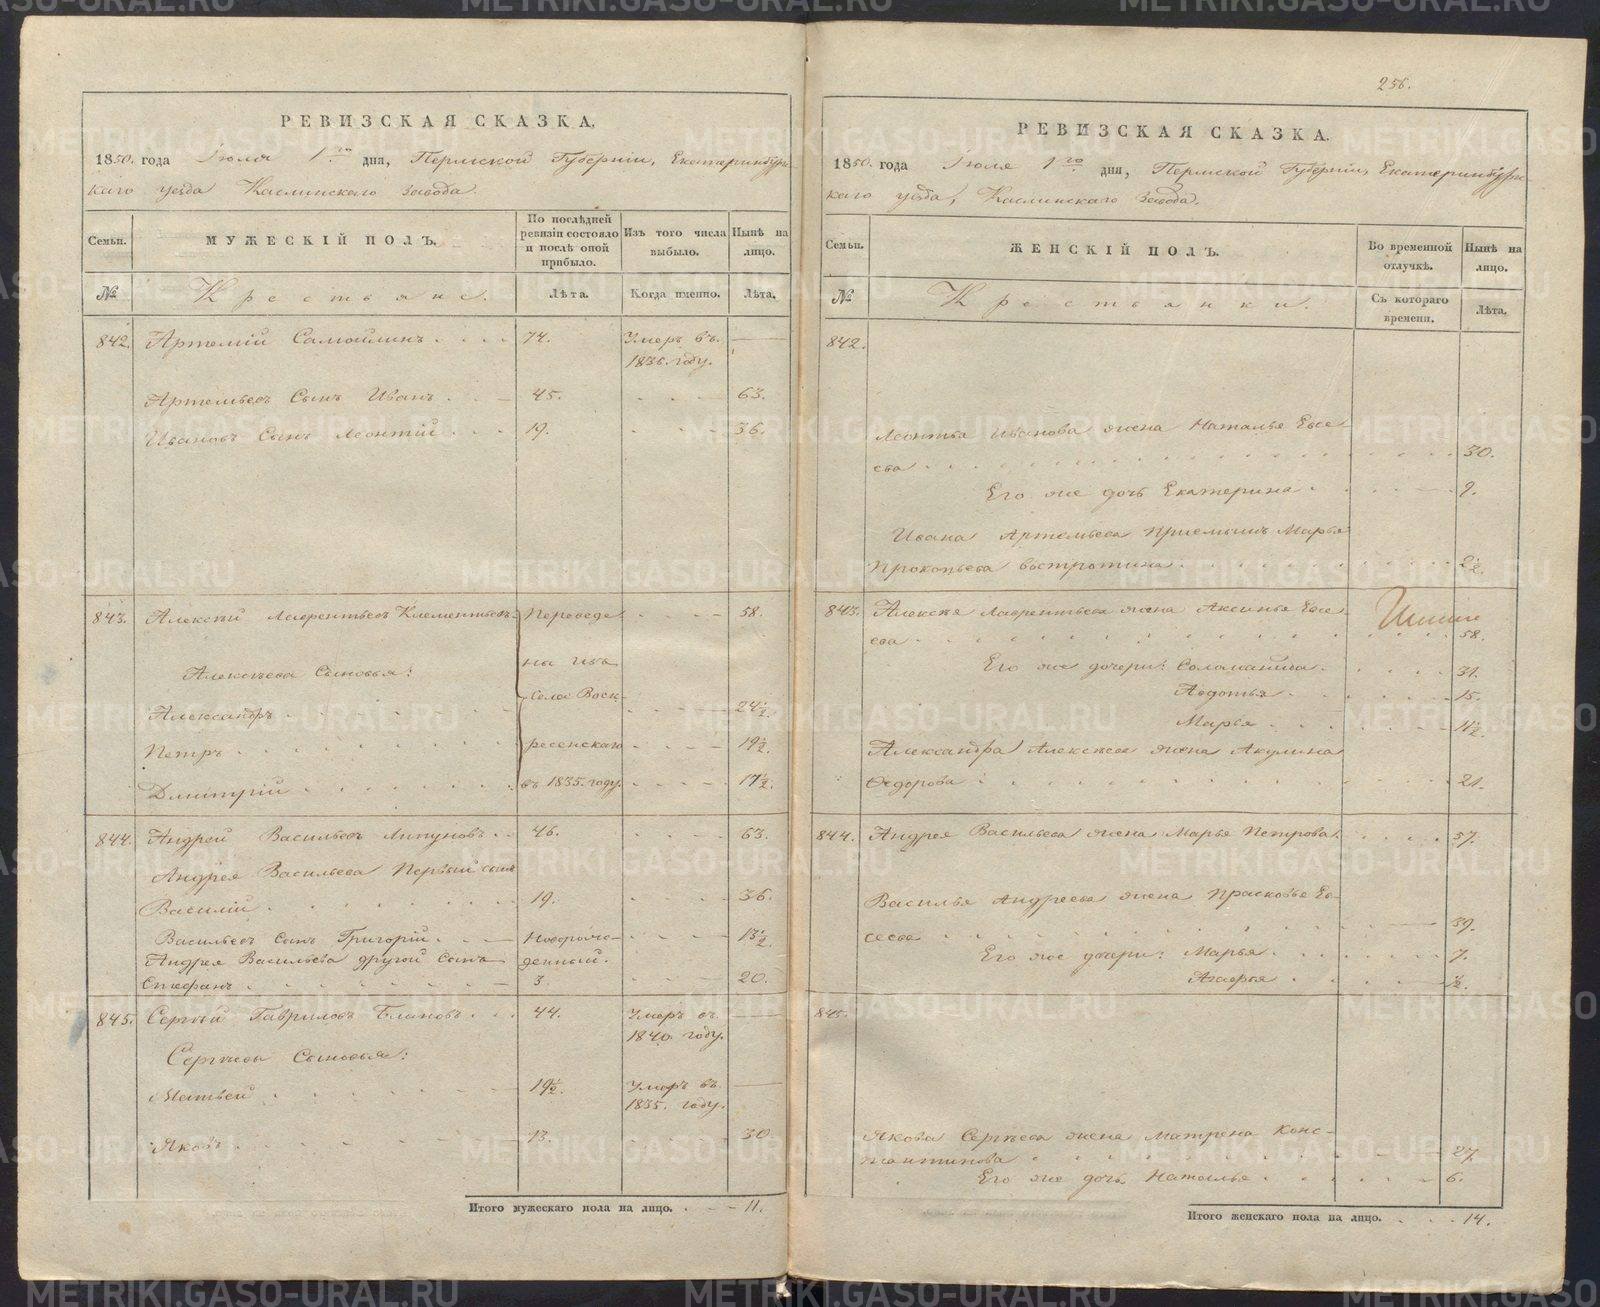 256.
РЕВИЗСКАЯ СКАЗКА.
1850. года Іюля 1го дня, Пермской Губерніи, Екатеринбургс-
каго уезда Каслинскаго завода.
Семьи.
МУЖЕСКІЙ ПОЛЪ.
По послѣдней ревизіи состояло и послѣ оной прибыло.
Изъ того числа выбыло.
Нынѣ на лицо.
№
Крестьяне.
Лѣта.
Когда именно.
Лѣта.
842. Артемій Самойлинъ 74. Умеръ въ 1836. году.
Артемьевъ Сынъ Иванъ 45. 63.
Ивановъ Сынъ Леонтій 19. 36.
843. Алексѣй Лаврентьевъ Клементьевъ Переведе- 58.
ны изъ
Алексѣева Сыновья:
Села Воск-
Александръ 24½.
Петръ ресенскаго 19½.
Дмитрій въ 1835. году. 17½.
844. Андрей Васильевъ Липуновъ 46. 63.
Андрея Васильева Первый сынъ
Василій 19. 36.
Васильевъ сынъ Григорій Новорож- 13½.
Андрея Васильева другой сынъ денный.
Степанъ 3. 20.
845. Сергѣй Гавриловъ Блиновъ 44. Умеръ въ 1840. году.
Сергѣевы Сыновья:
Матвей 19½. Умеръ въ 1835. году.
Яковъ 13. 30
Итого мужескаго пола на лицо. 11.
РЕВИЗСКАЯ СКАЗКА.
1850. года Іюля 1го дня, Пермской Губерніи, Екатеринбургс-
каго уезда, Каслинскаго Завода.
Семьи.
ЖЕНСКІЙ ПОЛЪ.
Во временной отлучкѣ.
Нынѣ на лицо.
№
Крестьянки.
Съ котораго времени.
Лѣта.
842.
Леонтья Иванова жена Наталья Евсе-
ева 30.
Его же дочь Екатерина 9.
Ивана Артемьева Приемышъ Марья
Прокопьева Востротина 2½.
843. Алексѣя Лаврентьева жена Аксинья Евсе-
ева 58.
Его же дочери: Соломанида 31.
Авдотья 15.
Марья 11½.
Александра Алексѣева жена Акулина
Ѳедорова 21.
844. Андрея Васильева жена Марья Петрова 57.
Василья Андреева жена Прасковья Ев-
сеева 39.
Его же дочери: Марья 7.
Агафья ½.
845.
Якова Сергѣева жена Матрена Конс-
тантинова 27.
Его же дочь Наталья 6.
Итого женскаго пола на лицо. 14.
METRIKI.GASO-URAL.RU